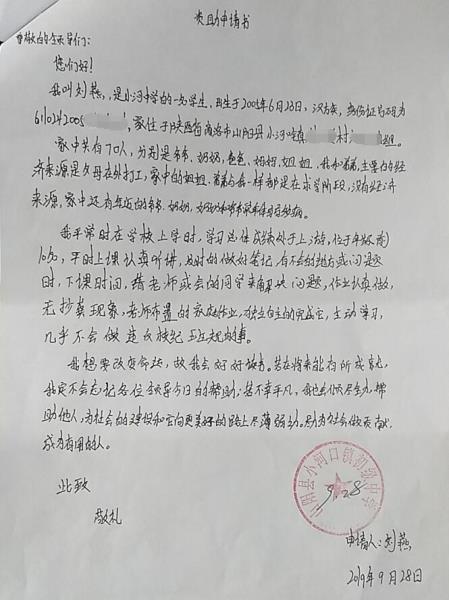 资助申请书
尊敬的领导们:
您们好!
我叫刘燕,是小河中学的一名学生,出生于2005年6月23日,汉族,身份证号码为
6110242005 家住于陕西省商洛市山阳县小河口镇 村 组。
家中共有7口人,分别是爷爷、奶奶、爸爸、妈妈、姐姐、我和弟弟,主要的经
济来源是父母在外打工,家中的姐姐、弟弟与我一样都是在求学阶段,没有经济
来源,家中还有年迈的爷爷、奶奶,奶奶和爷爷常年
我平常时在学校上学时,学习总体成绩处于上游,位于年级前
10%,平时上课认真听讲,及时的做好笔记,有不会的地方或问题
时,下课时问,找老师或会的同学来解决问题,作业认真做,
无抄袭现象,老师布置的家庭作业,独立自主的完成它,主动学习,
几乎不会做违反校纪班规的事。
我想要改变命运,故我会好好读书。若在将来能有所成就,
我定不会忘记各位领导今日的帮助;若不幸平凡,我也会倾尽全力,帮
助他人,为社会的建设和走向更美好的路上尽薄弱力。励为社会做贡献,
成为有用的人。
此致
敬礼
山阳县小河口镇初级中学
9.28
申请人:刘燕
2019年9月28日